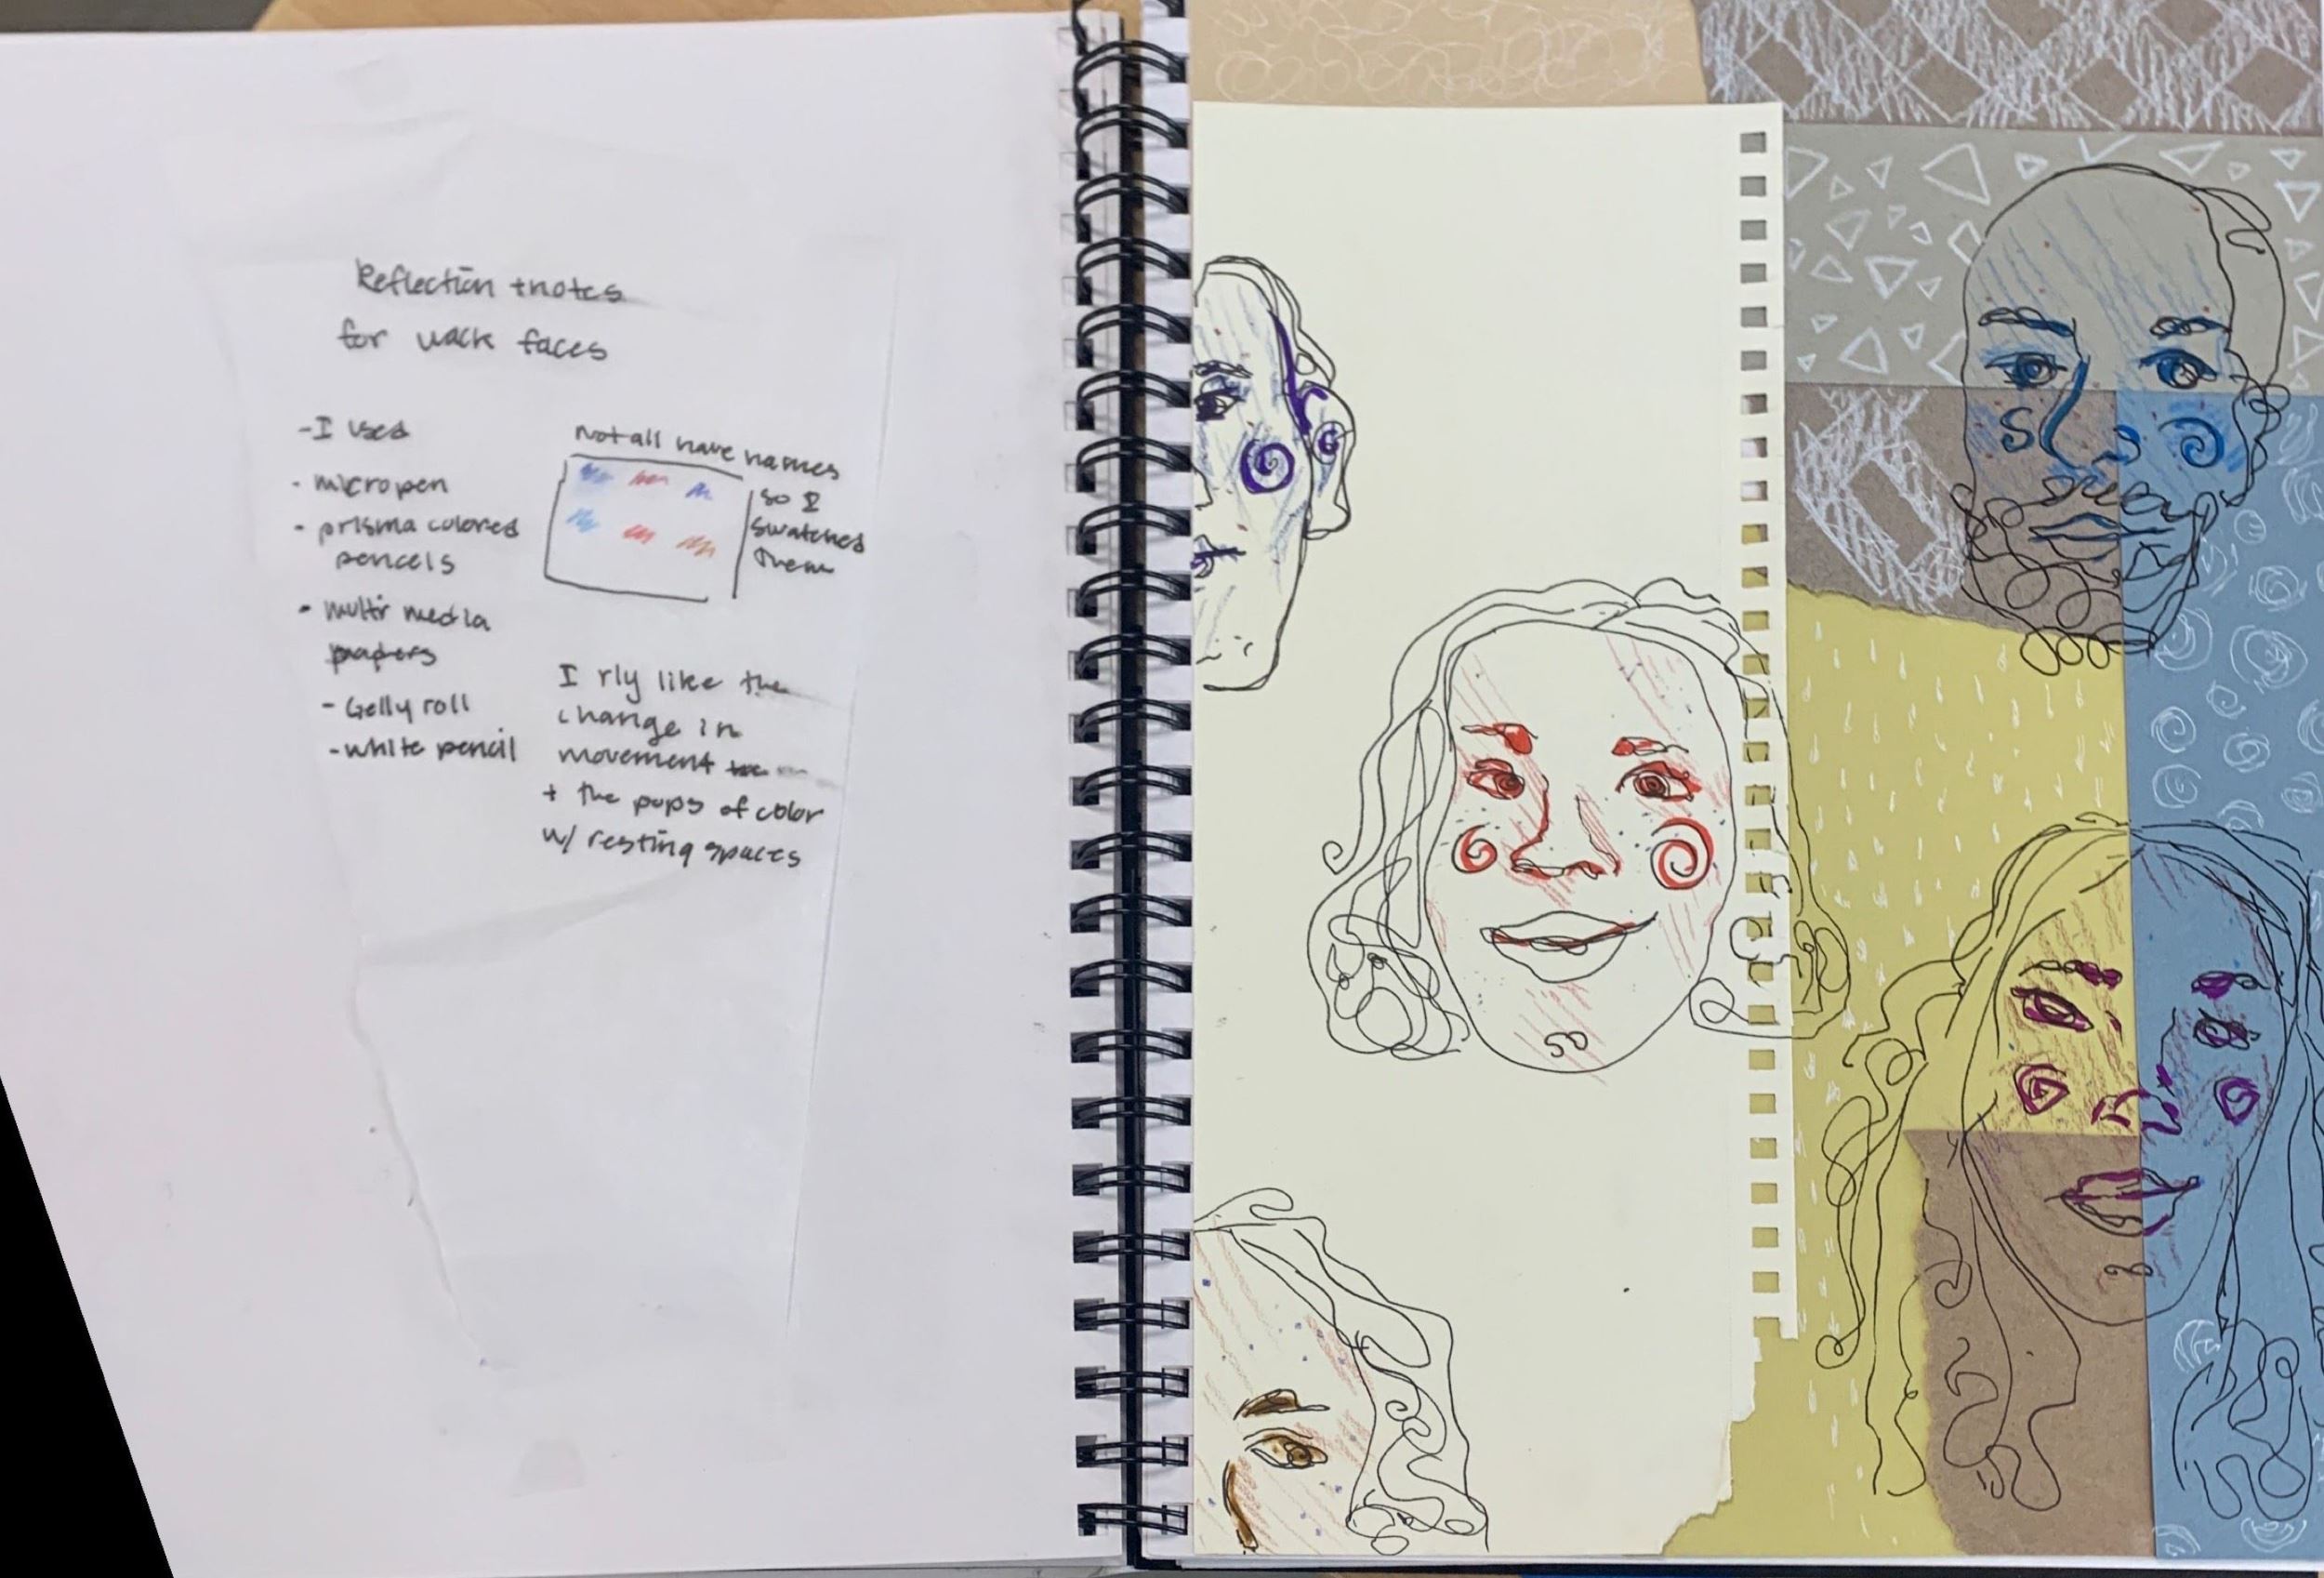 Reflection + notes
for wack faces
- I used
- micropen
- prisma colored
pencels
- multi media
papers
- Gelly roll
- white pencil
Not all have names
so I
swatched
them
I rly like the
change in
movement
+ the pops of color
w/ resting spaces